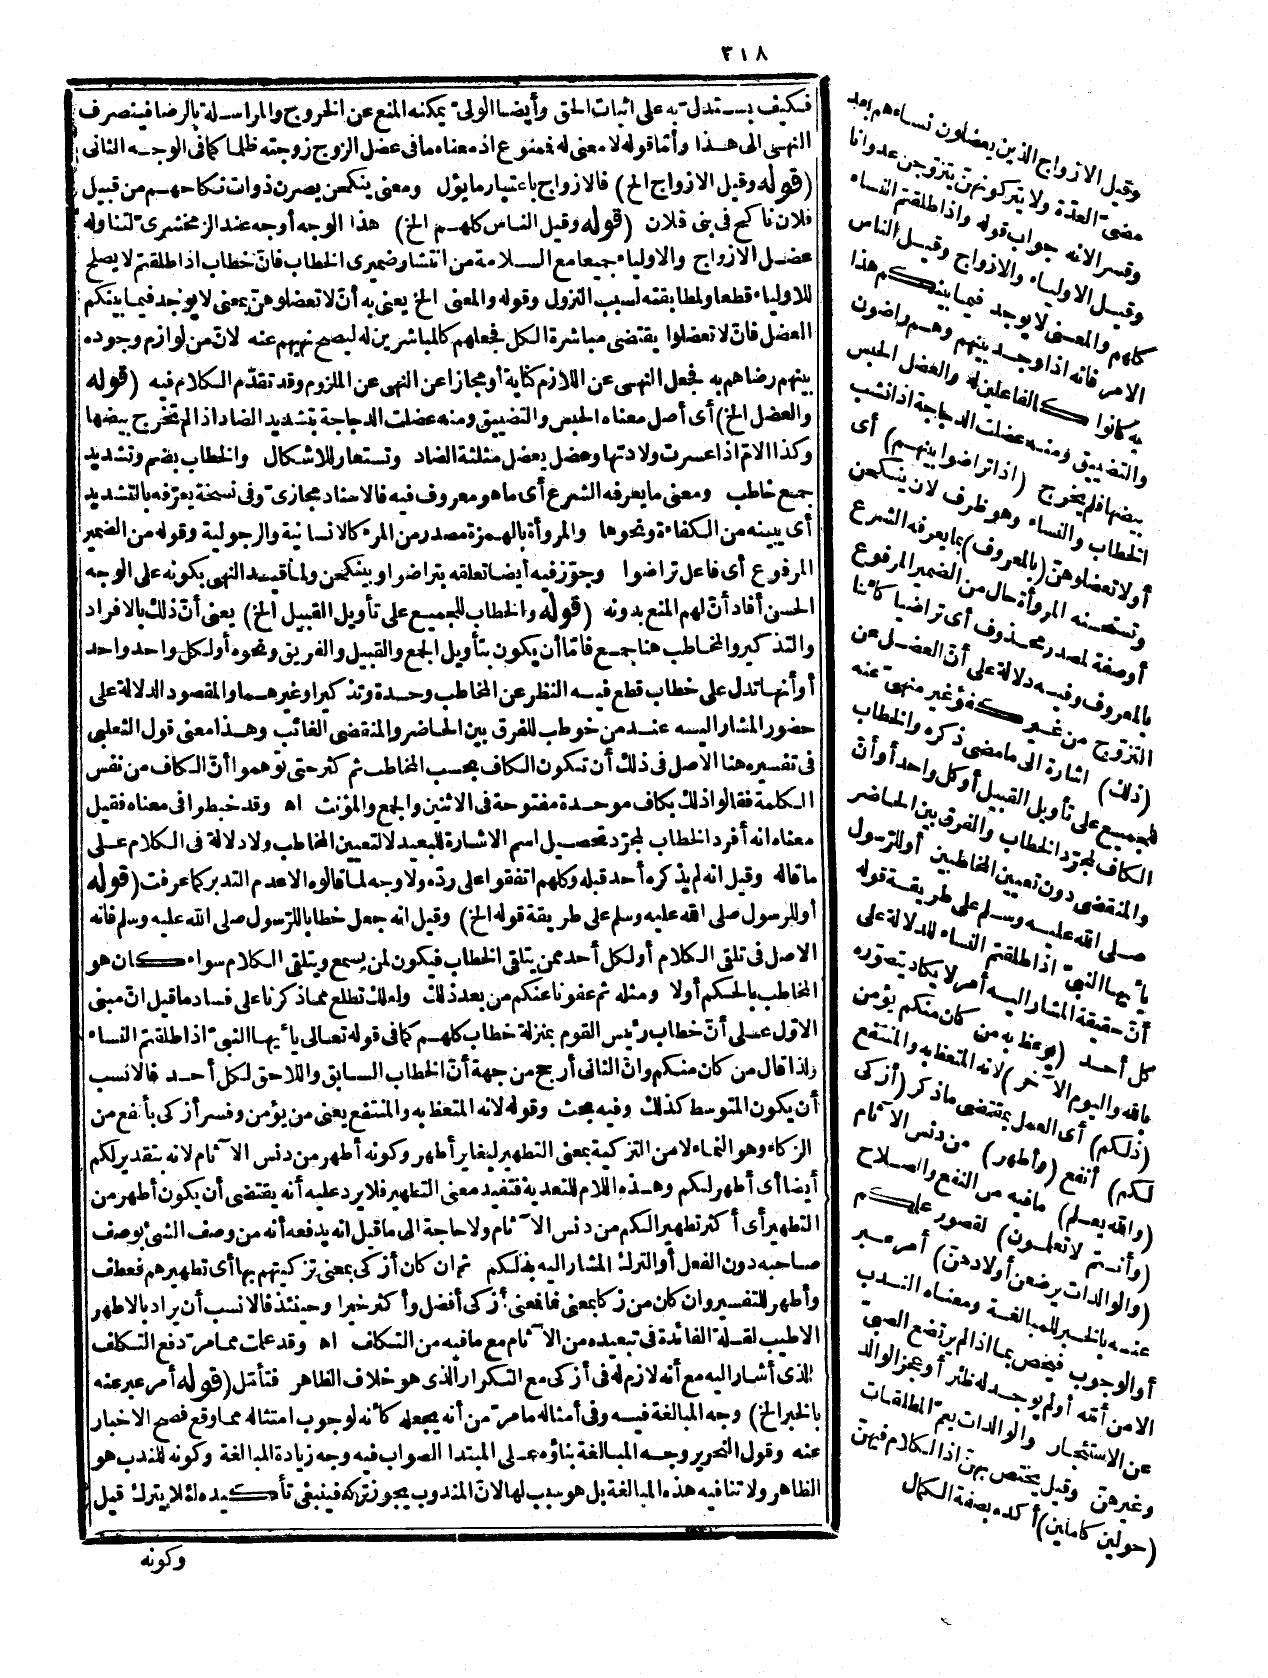 ٣١٨
فكيف يستدل به على اثبات الحق وأيضا الولى يمكنه المنع عن الخروج والمراسلة بالرضا فينصرف
النهى الى هذا وأما قوله لا معنى له فممنوع اذ معناه ما فى عضل الزوج زوجته ظلما كما فى الوجه الثانى
(قوله وقيل الازواج الخ) فالازواج باعتبار ما يؤل ومعنى ينكحن يصرن ذوات نكاحهم من قبيل
فلان ناكح فى بنى فلان (قوله وقيل الناس كلهم الخ) هذا الوجه أوجه عند الزمخشرى لتناوله
عضل الازواج والاولياء جميعا مع السلامة من انتشار ضميرى الخطاب فان خطاب اذا طلقتم لا يصلح
للاولياء قطعا ولمطابقته لسبب النزول وقوله والمعنى الخ يعنى به أن لا تعضلوهن بمعنى لا يوجد فيما بينكم
العضل فان لا تعضلوا يقتضى مباشرة الكل فجعلهم كالمباشرين له ليصح نهيهم عنه لان من لوازم وجوده
بينهم رضاهم به فجعل النهى عن اللازم كناية أو مجازا عن النهى عن الملزوم وقد تقدم الكلام فيه (قوله
والعضل الخ) أى أصل معناه الحبس والتضييق ومنه عضلت الدجاجة بتشديد الضاد اذا لم تخرج بيضها
وكذا الام اذا عسرت ولادتها وعضل يعضل مثلثة الضاد وتستعار للاشكال والخطاب بضم وتشديد
جمع خاطب ومعنى ما يعرفه الشرع أى ما هو معروف فيه فالاسناد مجازى وفى نسخة يعرّفه بالتشديد
أى يبينه من الكفاءة ونحوها والمروأة بالهمزة مصدر من المرء كالانسانية والرجولية وقوله من الضمير
المرفوع أى فاعل تراضوا وجوّز فيه أيضا تعلقه بتراضوا وينكحن ولما قيد النهى بكونه على الوجه
الحسن أفاد أن لهم المنع بدونه (قوله والخطاب للجميع على تأويل القبيل الخ) يعنى أن ذلك بالافراد
والتذكير والمخاطب هنا جمع فاما أن يكون بتأويل الجمع والقبيل والفريق ونحوه أو لكل واحد واحد
أو أنها تدل على خطاب قطع فيه النظر عن المخاطب وحدة وتذكيرا وغيرهما والمقصود الدلالة على
حضور المشار اليه عند من خوطب للفرق بين الحاضر والمنقضى الغائب وهذا معنى قول الثعلبى
فى تفسيره هنا الاصل فى ذلك أن تكون الكاف بحسب المخاطب ثم كثر حتى توهموا أن الكاف من نفس
الكلمة فقالوا ذلك بكاف موحدة مفتوحة فى الاثنين والجمع والمؤنث اه وقد خبطوا فى معناه فقيل
معناه انه أفرد الخطاب لمجرّد تحصيل اسم الاشارة للبعيد لا لتعيين المخاطب ولا دلالة فى الكلام على
ما قاله وقيل انه لم يذكره أحد قبله وكلهم اتفقوا على ردّه ولا وجه لما قالوه الا عدم التدبر كما عرفت (قوله
أو للرسول صلى الله عليه وسلم على طريقة قوله الخ) وقيل انه جعل خطابا للرسول صلى الله عليه وسلم فانه
الاصل فى تلقى الكلام أو لكل أحد ممن يتلقى الخطاب فيكون لمن يسمع ويتلقى الكلام سواء كان هو
المخاطب بالحكم أولا ومثله ثم عفونا عنكم من بعد ذلك ولعلك تطلع مما ذكرنا على فساد ما قيل ان مبنى
الاول على أن خطاب رئيس القوم بمنزلة خطاب كلهم كما فى قوله تعالى يا أيها النبى اذا طلقتم النساء
ولذا قال من كان منكم وان الثانى أرجح من جهة أن الخطاب السابق واللاحق لكل أحد فالانسب
أن يكون المتوسط كذلك وفيه بحث وقوله لانه المتعظ به والمنتفع يعنى من يؤمن وفسر أزكى بأنفع من
الزكاء وهو النماء لا من التزكية بمعنى التطهير ليغاير أطهر وكونه أطهر من دنس الآثام لانه بتقدير لكم
أيضا أى أطهر لكم وهذه اللام للتعدية فتفيد معنى التطهير فلا يرد عليه أنه يقتضى أن يكون أطهر من
التطهير أى أكثر تطهيرا لكم من دنس الآثام ولا حاجة الى ما قيل انه يدفعه أنه من وصف الشئ بوصف
صاحبه دون الفعل أو الترك المشار اليه بذلكم ثم ان كان أزكى بمعنى تزكيتهم بها أى تطهيرهم فعطف
وأطهر للتفسير وان كان من زكا بمعنى نما فمعنى أزكى أفضل وأكثر خيرا وحينئذ فالانسب أن يراد بالاطهر
الاطيب لقلة الفائدة فى تبعيده من الآثام مع ما فيه من التكلف اه وقد علمت مما مرّ دفع التكلف
الذى أشار اليه مع أنه لازم له فى أزكى مع التكرار الذى هو خلاف الظاهر فتأمل (قوله أمر عبر عنه
بالخبر الخ) وجه المبالغة فيه وفى أمثاله ما مرّ من أنه يجعله كأنه لوجوب امتثاله مما وقع فصح الاخبار
عنه وقول النحرير وجه المبالغة بناؤه على المبتدا الصواب فيه وجه زيادة المبالغة وكونه للندب هو
الظاهر ولا تنافيه هذه المبالغة بل هو سبب لها لان المندوب يجوز تركه فينبغى تأكيده لئلا يترك قيل
وكونه
وقيل الازواج الذين يعضلون نساءهم بعد
مضى العدّة ولا يتركونهن يتزوجن عدوانا
وقسرا لانه جواب قوله واذا طلقتم النساء
وقيل الاولياء والازواج وقيل الناس
كلهم والمعنى لا يوجد فيما بينكم هذا
الامر فانه اذا وجد بينهم وهم راضون
به كانوا كالفاعلين له والعضل الحبس
والتضييق ومنه عضلت الدجاجة اذا نشب
بيضها فلم يخرج (اذا تراضوا بينهم) أى
الخطاب والنساء وهو ظرف لان ينكحن
أو لا تعضلوهن (بالمعروف) بما يعرفه الشرع
وتستحسنه المروأة حال من الضمير المرفوع
أو صفة لمصدر محذوف أى تراضيا كائنا
بالمعروف وفيه دلالة على أن العضل عن
التزوج من غير كفؤ غير منهى عنه
(ذلك) اشارة الى ما مضى ذكره والخطاب
للجميع على تأويل القبيل أو كل واحد أو أن
الكاف لمجرّد الخطاب والفرق بين الحاضر
والمنقضى دون تعيين المخاطبين أو للرسول
صلى الله عليه وسلم على طريقة قوله
يا أيها النبى اذا طلقتم النساء للدلالة على
أن حقيقة المشار اليه أمر لا يكاد يتصوره
كل أحد (يوعظ به من كان منكم يؤمن
بالله واليوم الآخر) لانه المتعظ به والمنتفع
(ذلكم) أى العمل بمقتضى ما ذكر (أزكى
لكم) أنفع (وأطهر) من دنس الآثام
(والله يعلم) ما فيه من النفع والصلاح
(وأنتم لا تعلمون) لقصور علمكم
(والوالدات يرضعن أولادهن) أمر عبر
عنه بالخبر للمبالغة ومعناه الندب
أو الوجوب فيخص بما اذا لم يرتضع الصبى
الا من أمّه أو لم يوجد له ظئر أو عجز الوالد
عن الاستئجار والوالدات يعم المطلقات
وغيرهن وقيل يختص بهن اذ الكلام فيهن
(حولين كاملين) أكده بصفة الكمال